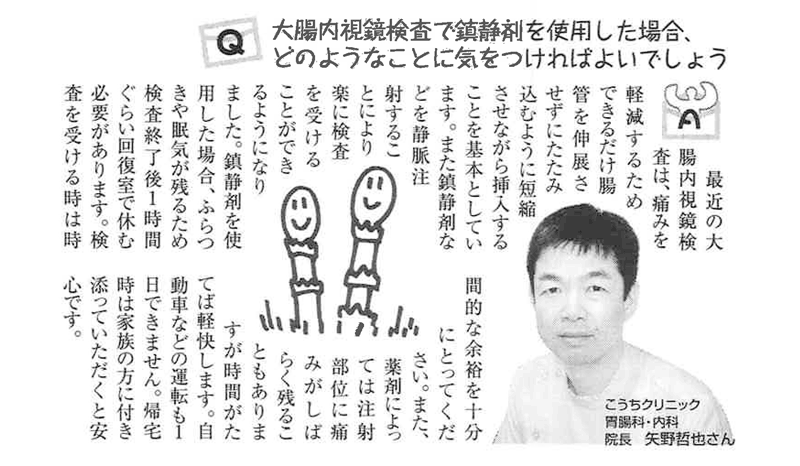 Q
大腸内視鏡検査で鎮静剤を使用した場合、
どのようなことに気をつければよいでしょう
A
最近の大
腸内視鏡検
査は、痛みを
軽減するため
できるだけ腸
管を伸展さ
せずにたたみ
込むように短縮
させながら挿入する
ことを基本としてい
ます。また鎮静剤な
どを静脈注
射するこ
とにより
楽に検査
を受ける
ことができ
るようになり
ました。鎮静剤を使
用した場合、ふらつ
きや眠気が残るため
検査終了後1時間
ぐらい回復室で休む
必要があります。検
査を受ける時は時
間的な余裕を十分
にとってくだ
さい。また、
薬剤によっ
ては注射
部位に痛
みがしば
らく残るこ
ともありま
すが時間がた
てば軽快します。自
動車などの運転も1
日できません。帰宅
時は家族の方に付き
添っていただくと安
心です。
こうちクリニック
胃腸科・内科
院長 矢野哲也さん